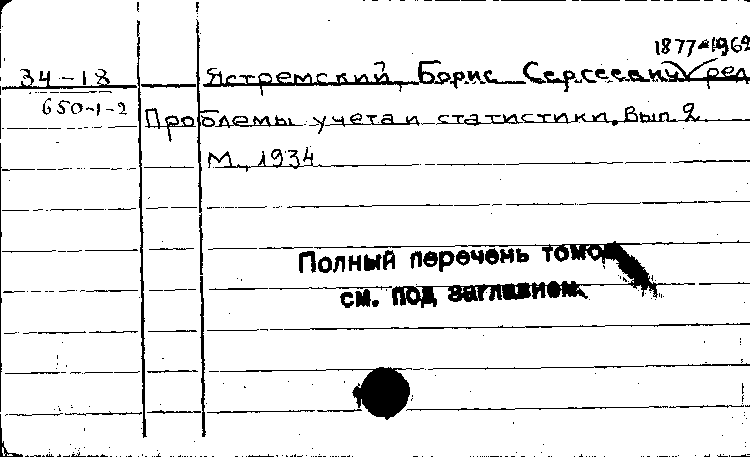 1877-1962
34-18 Ястремский, Борис Сергеевич, ред
650-1-2
Проблемы учета и статистики. Вып. 2
М., 1934
Полный перечень томов
см. под заглавием.